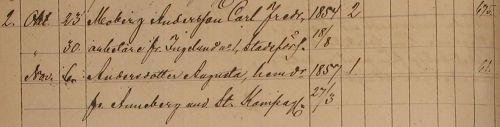 2. Okt. 23 Moberg Andersson Carl Fredr. 1854 2 675.
" 30. arbetare fr. Ingelund No 1, Stadsförs. 18/8
Nov. 6. Andersdotter Augusta, hemdr 1857 1. 61.
fr. Anneberg und. St. 27/3